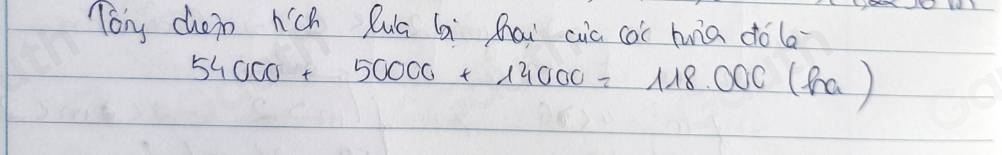 Tổng diện tích lúa bị hại của các tỉnh đó là
54000 + 50000 + 14000 = 118.000 (ha)